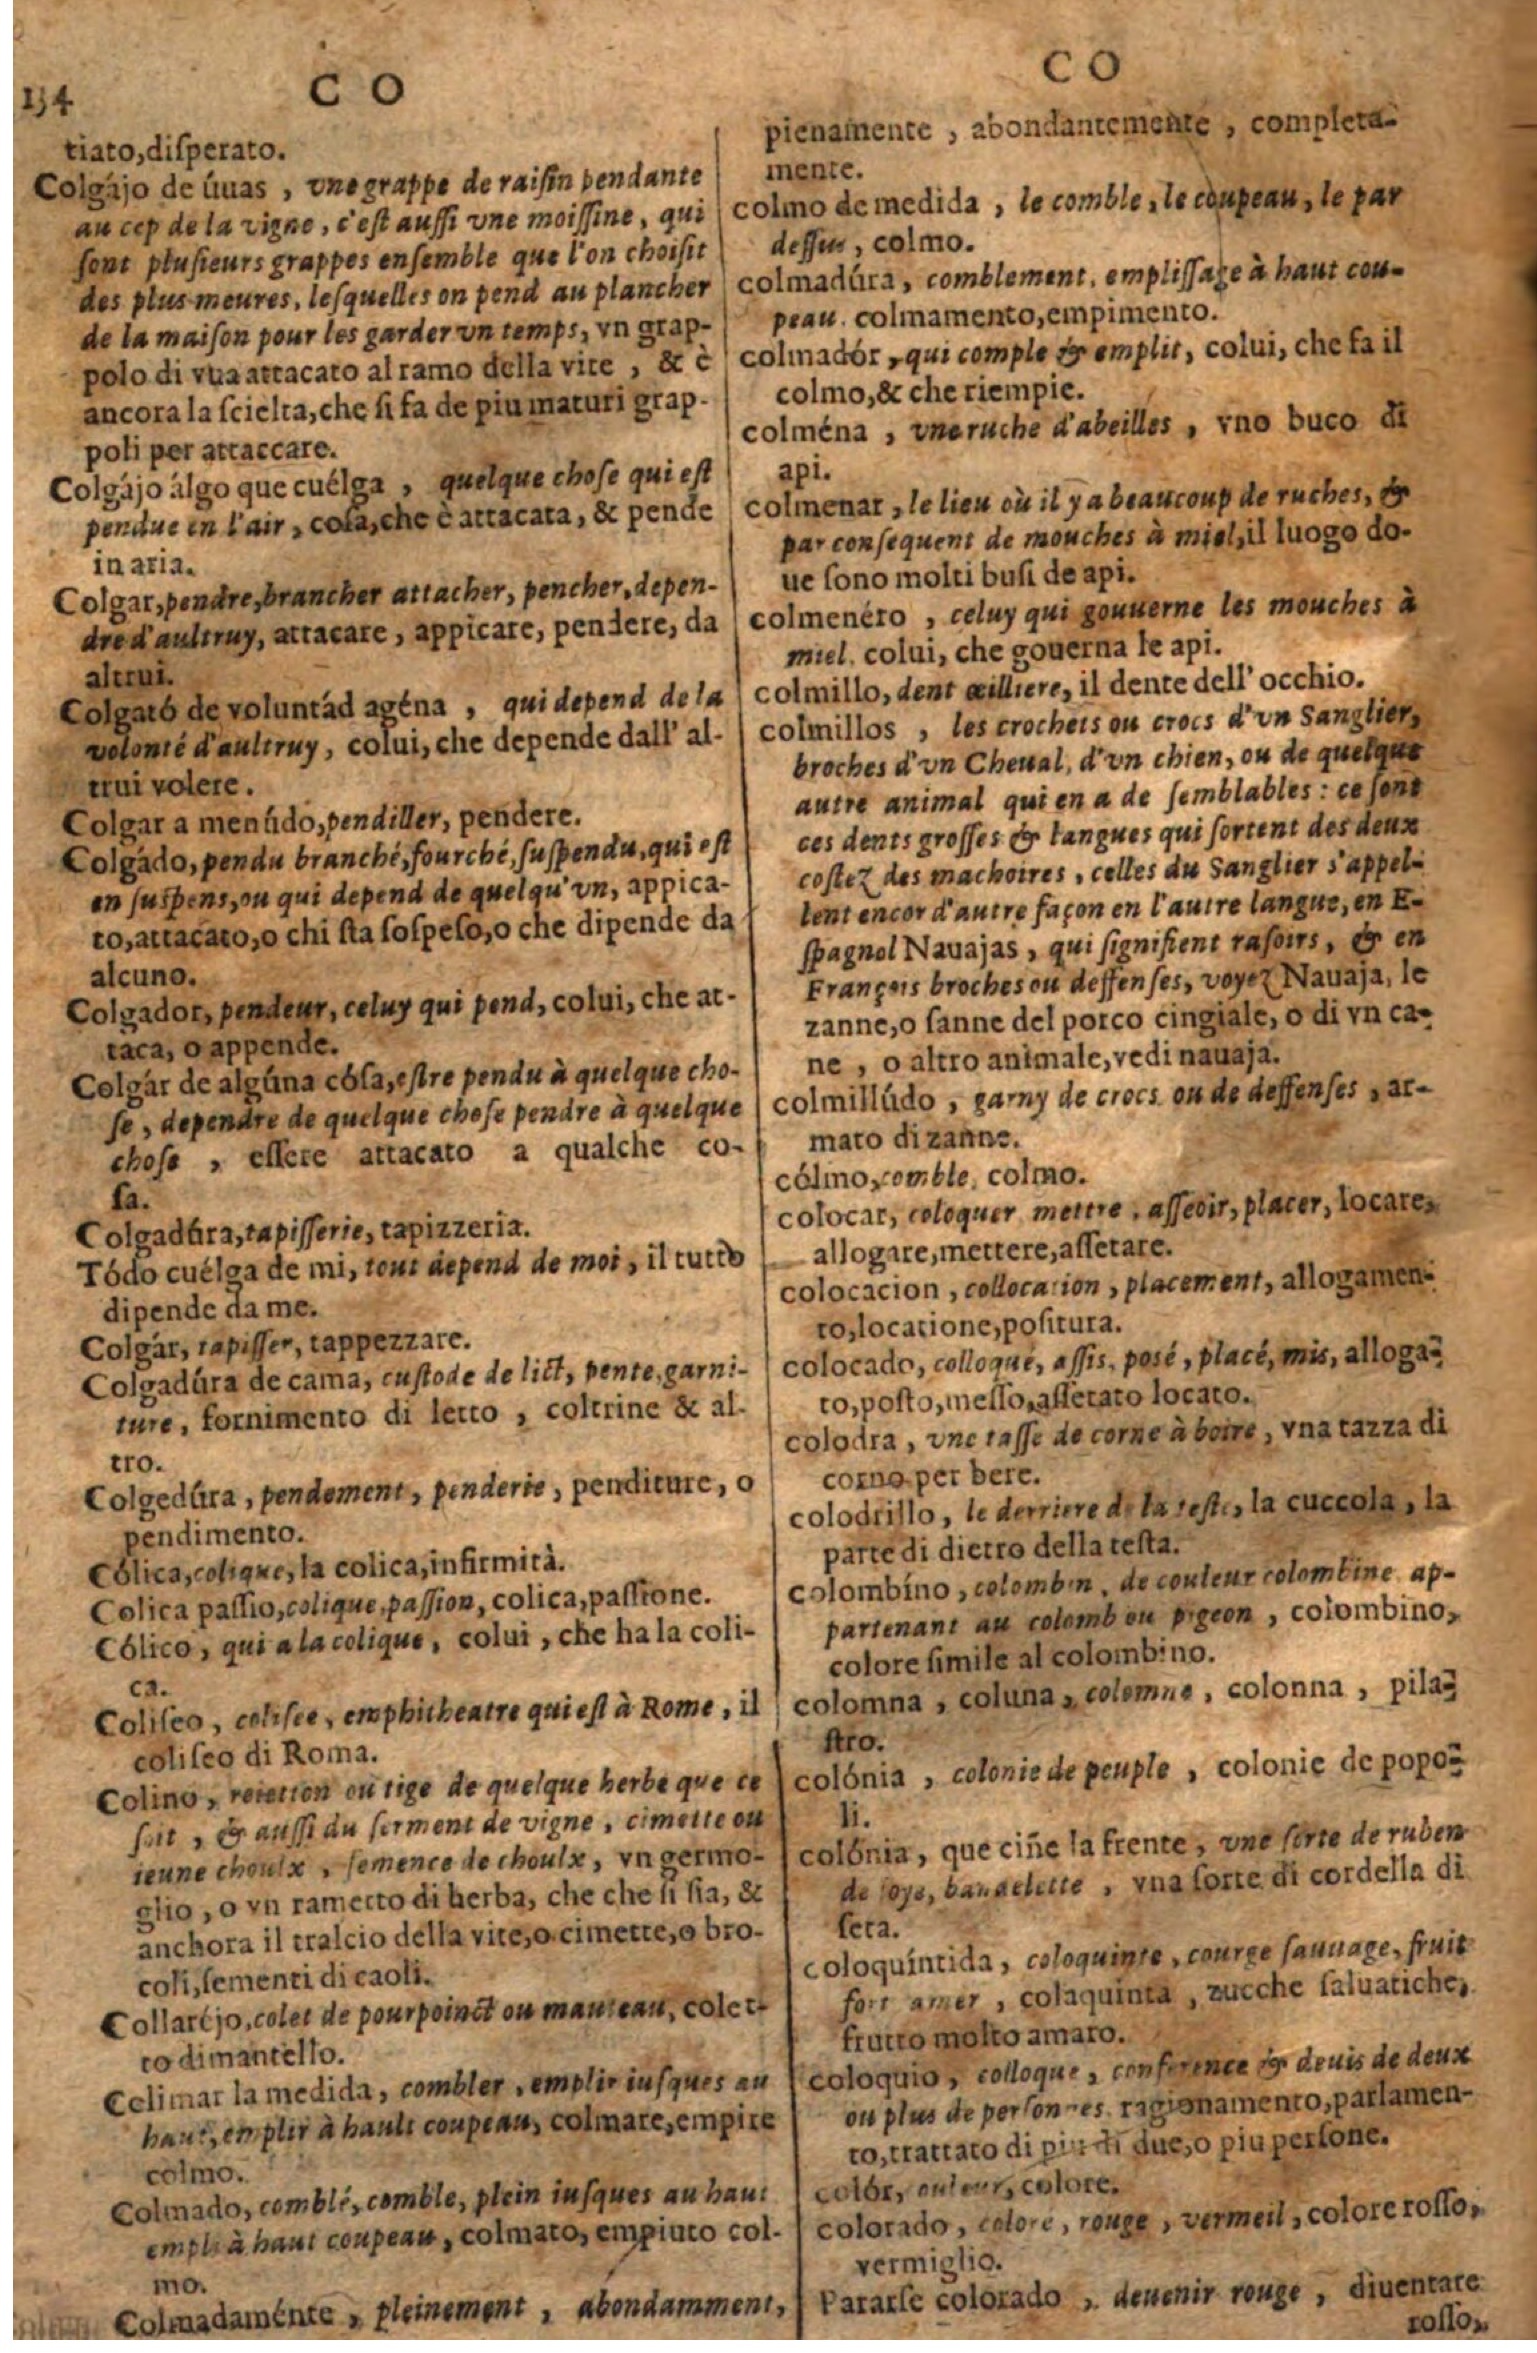 134
C O
tiato,disperato.
Colgájo de úuas , vne grappe de raisin pendante
au cep de la vigne, c'est aussi vne moissine, qui
sont plusieurs grappes ensemble que l'on choisit
des plus meures, lesquelles on pend au plancher
de la maison pour les garder vn temps, vn grap-
polo di vua attacato al ramo della vite , & è
ancora la scielta,che si fa de piu maturi grap-
poli per attaccare.
Colgájo álgo que cuélga , quelque chose qui est
pendue en l'air , cosa,che è attacata, & pende
in aria.
Colgar,pendre,brancher attacher, pencher,depen-
dre d'aultruy, attacare , appicare, pendere, da
altrui.
Colgató de voluntád agéna , qui depend de la
volonté d'aultruy, colui,che depende dall' al-
trui volere.
Colgar a menúdo,pendiller, pendere.
Colgádo, pendu branché,fourché,suspendu,qui est
en suspens,ou qui depend de quelqu'vn, appica-
to,attacato,o chi sta sospeso,o che dipende da
alcuno.
Colgador, pendeur, celuy qui pend, colui, che at-
taca, o appende.
Colgár de algúna cósa,estre pendu à quelque cho-
se , dependre de quelque chose pendre à quelque
chose , essere attacato a qualche co-
sa.
Colgadúra,tapisserie, tapizzeria.
Tódo cuélga de mi, tout depend de moi , il tutto
dipende da me.
Colgár, tapisser, tappezzare.
Colgadúra de cama, custode de lict, pente,garni-
ture, fornimento di letto , coltrine & al-
tro.
Colgedúra , pendement , penderie , penditure , o
pendimento.
Cólica,colique,la colica,infirmità.
Colica passio,colique,passion, colica,passione.
Cólico , qui a la colique , colui , che ha la coli-
ca.
Coliseo , colisee , emphitheatre qui est à Rome , il
coliseo di Roma.
Colino , reietton ou tige de quelque herbe que ce
soit , & aussi du serment de vigne , cimette ou
ieune choulx , semence de choulx, vn germo-
glio , o vn rametto di herba, che che si sia, &
anchora il tralcio della vite,o cimette,o bro-
coli,sementi di caoli.
Collaréjo,colet de pourpoinct ou manteau, colet-
to dimantello.
Colimar la medida , combler , emplir iusques au
haut,emplir à hault coupeau, colmare,empire
colmo.
Colmado, comblé, comble, plein iusques au haut
empli à haut coupeau , colmato, empiuto col-
mo.
Colmadaménte , pleinement , abondamment,
C O
pienamente , abondantemente , completa-
mente.
colmo de medida , le comble, le coupeau, le par
dessus , colmo.
colmadúra , comblement, emplissage à haut cou-
peau. colmamento,empimento.
colmadór , qui comple & emplit, colui, che fa il
colmo,& che riempie.
colména , vne ruche d'abeilles , vno buco di
api.
colmenar , le lieu où il y a beaucoup de ruches, &
par consequent de mouches à miel,il luogo do-
ue sono molti busi de api.
colmenéro , celuy qui gouuerne les mouches à
miel. colui, che gouerna le api.
colmillo, dent œilliere, il dente dell' occhio.
colmillos , les crochets ou crocs d'vn Sanglier,
broches d'vn Cheual, d'vn chien, ou de quelque
autre animal qui en a de semblables : ce sont
ces dents grosses & langues qui sortent des deux
costez des machoires , celles du Sanglier s'appel-
lent encor d'autre façon en l'autre langue, en E-
spagnol Nauajas , qui signifient rasoirs , & en
François broches ou deffenses, voyez Nauaja, le
zanne,o sanne del porco cingiale, o di vn ca-
ne , o altro animale,vedi nauaja.
colmillúdo , garny de crocs ou de deffenses , ar-
mato di zanne.
cólmo,comble, colmo.
colocar, coloquer mettre , asseoir, placer, locare,
allogare,mettere,assetare.
colocacion , collocation , placement, allogamen-
to,locatione,positura.
colocado, colloqué, assis, posé , placé, mis, alloga-
to,posto,messo,assetato locato.
colodra , vne tasse de corne à boire , vna tazza di
corno per bere.
colodrillo , le derriere de la teste, la cuccola , la
parte di dietro della testa.
colombíno , colombin , de couleur colombine ap-
partenant au colomb ou pigeon , colombino,
colore simile al colombino.
colomna , coluna , colomne , colonna , pila-
stro.
colónia , colonie de peuple , colonie de popo-
li.
colónia , que ciñe la frente , vne sorte de ruben
de soye, bandelette , vna sorte di cordella di
seta.
coloquíntida , coloquinte , courge sauuage, fruit
fort amer , colaquinta , zucche saluatiche,
frutto molto amaro.
coloquio , colloque , conference & deuis de deux
ou plus de personnes. ragionamento,parlamen-
to,trattato di piu di due,o piu persone.
colór, couleur, colore.
colorado , coloré , rouge , vermeil , colore rosso,
vermiglio.
Pararse colorado , deuenir rouge , diuentare
rosso,